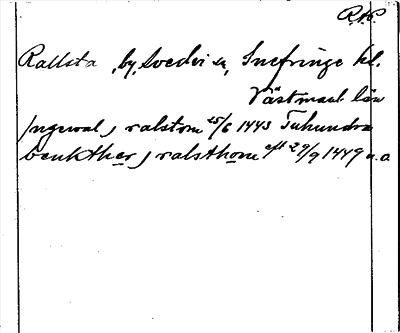 R.A.P.
Rallsta, by, Svedvi sn, Snefringe hd.
Västmanl. län
Ingewal j ralstom 25/6 1443 Tuhundra
benkther j ralsthom eft 29/9 1449 n.a.